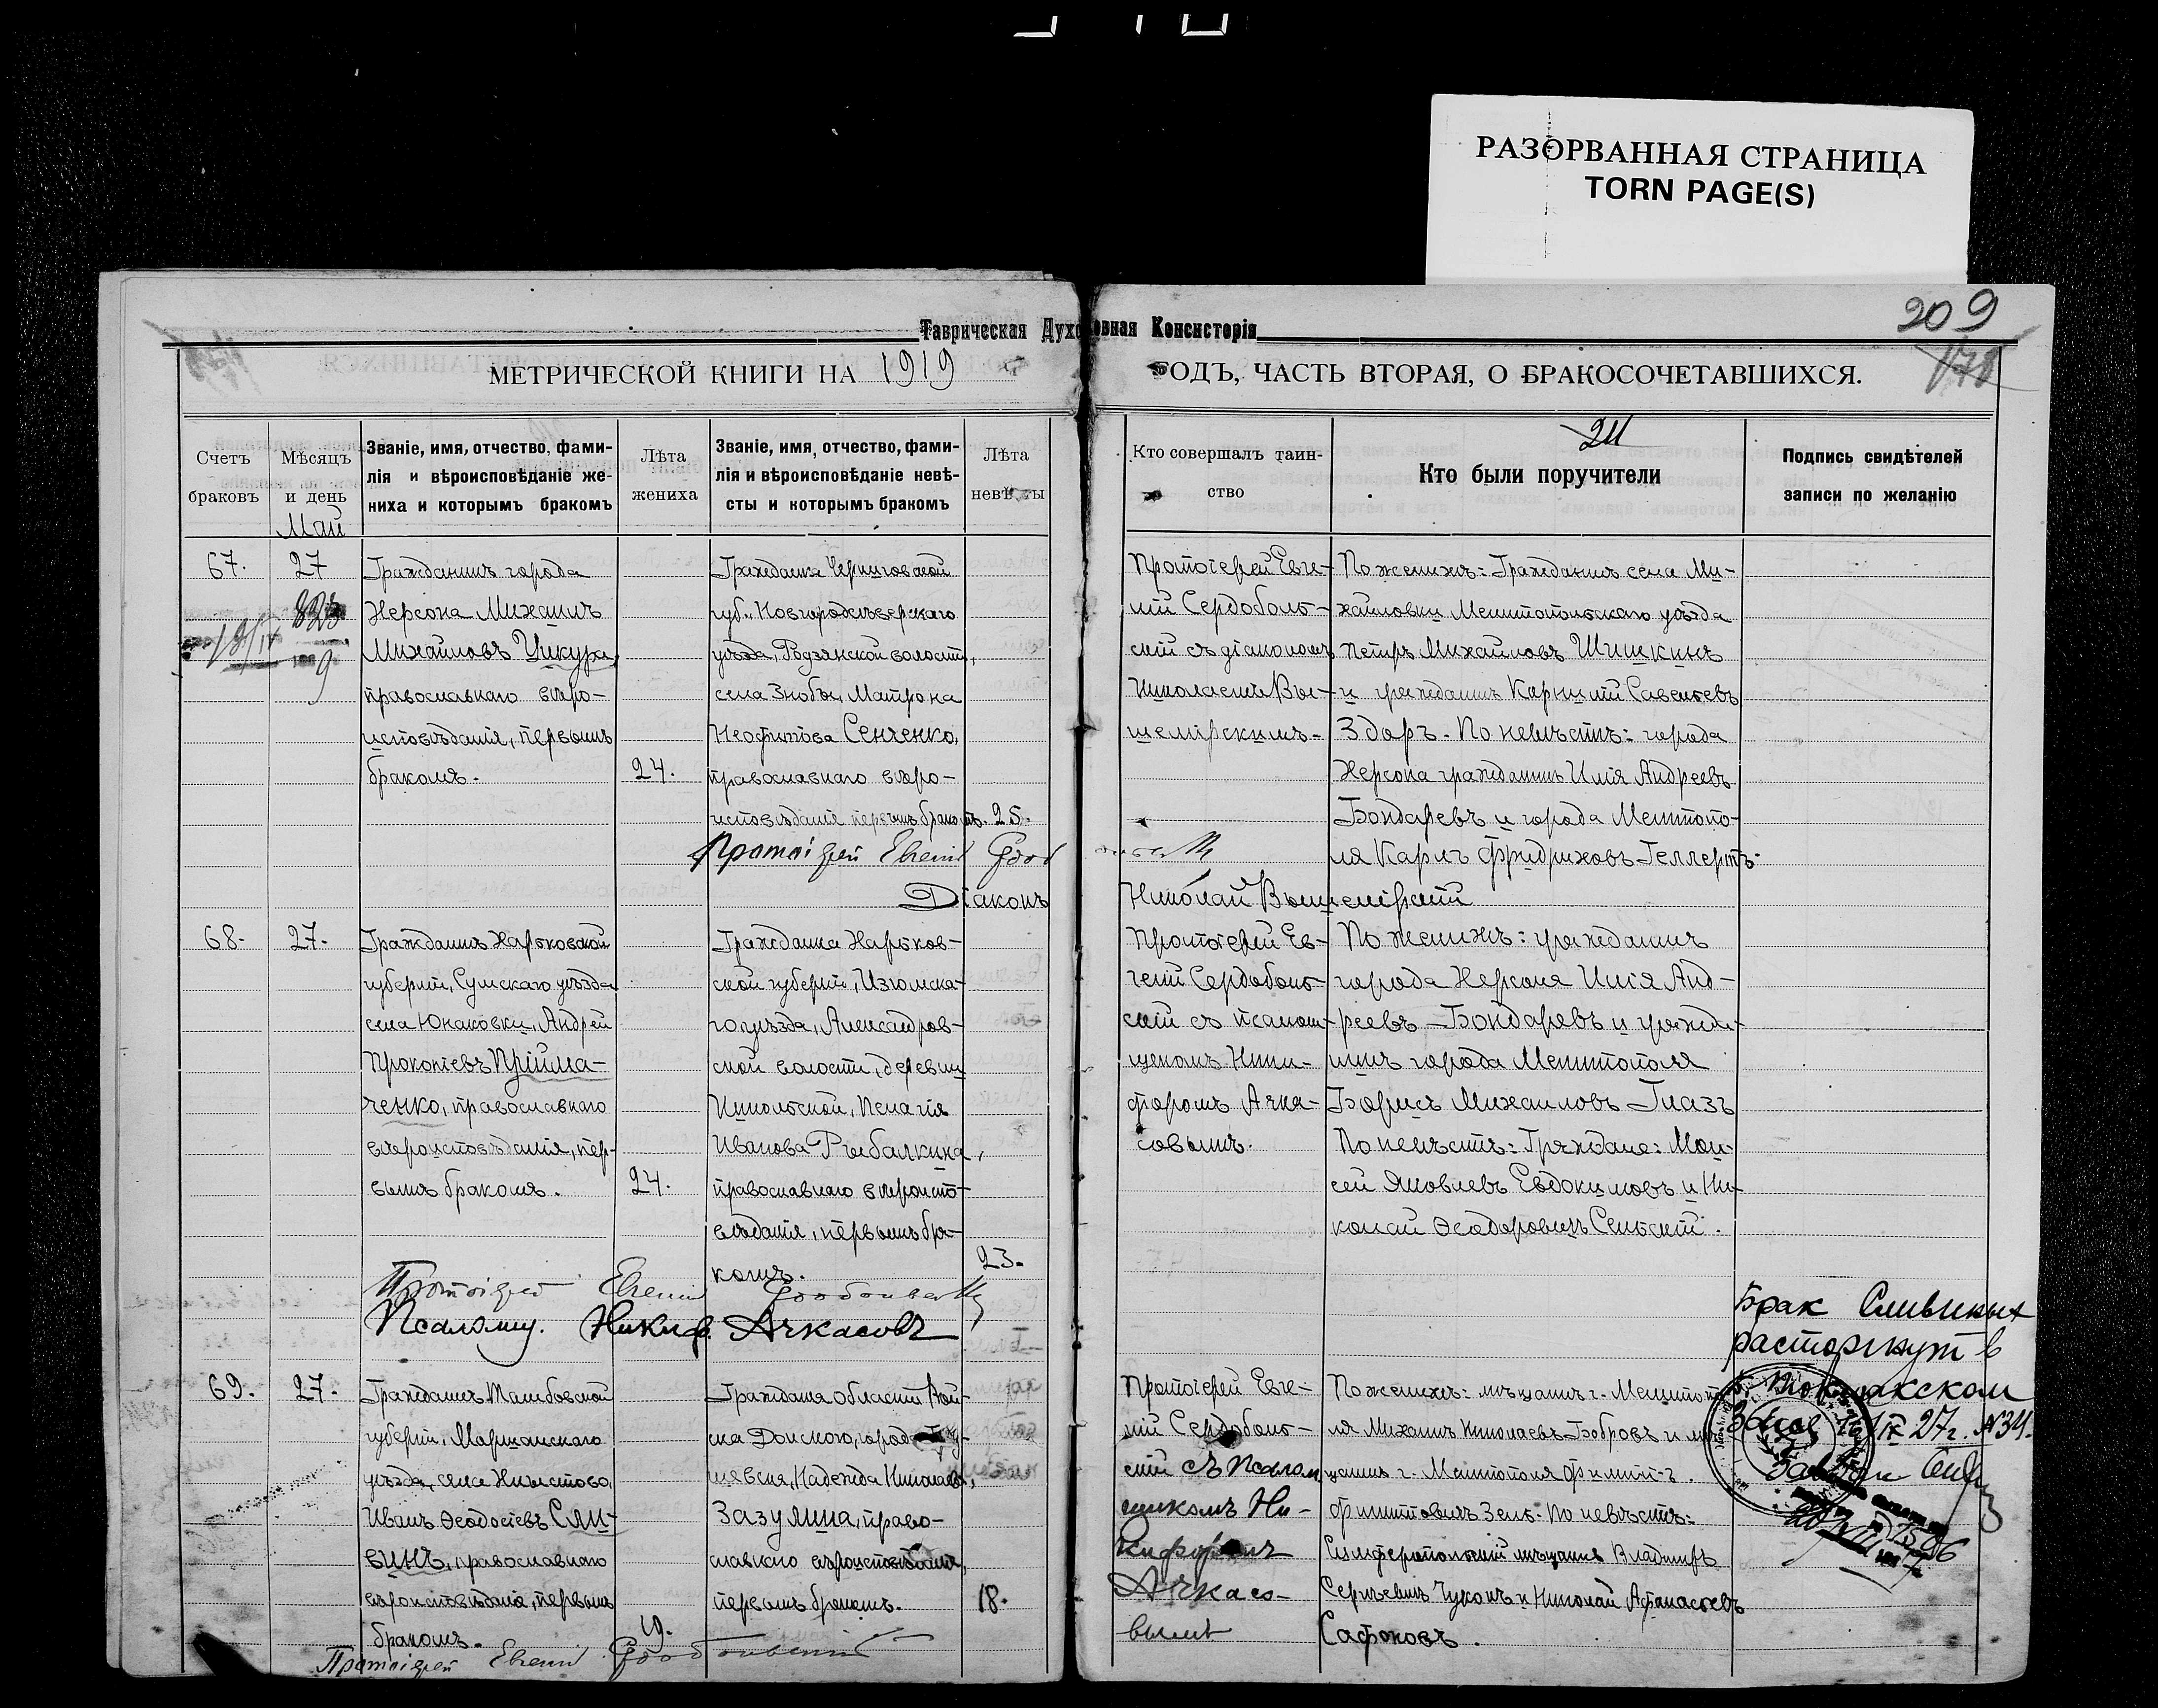 РАЗОРВАННАЯ СТРАНИЦА
TORN PAGE(S)
209
178
Таврическая Духовная Консисторія
МЕТРИЧЕСКОЙ КНИГИ НА 1919
ГОДЪ, ЧАСТЬ ВТОРАЯ, О БРАКОСОЧЕТАВШИХСЯ.
211
Счетъ браковъ
Мѣсяцъ и день
Званіе, имя, отчество, фами-
лія и вѣроисповѣданіе же-
ниха и которымъ бракомъ
Лѣта жениха
Званіе, имя, отчество, фами-
лія и вѣроисповѣданіе невѣ-
сты и которымъ бракомъ
Лѣта невѣсты
Кто совершалъ таин-
ство
Кто были поручители
Подпись свидѣтелей
записи по желанію
Май
67.
27
Гражданинъ города
Херсона Михаилъ
Михайловъ Цикура,
православнаго вѣро-
исповѣданія, первымъ
бракомъ.
24.
Гражданка Черниговской
губ., Новгородсѣверскаго
уѣзда, волости,
села Знобы, Матрона
Неофитова Сенченко,
православнаго вѣро-
исповѣданія первымъ бракомъ.
25.
Протоіерей Евге-
ній Сердоболь-
скій съ діакономъ
Николаемъ Вы-
шемірскимъ.
По женихѣ: Гражданинъ села Ми-
хайловки Мелитопольскаго уѣзда
Петръ Михайловъ Шишкинъ
и гражданинъ Савельевъ
Здоръ. По невѣстѣ: города
Херсона гражданинъ Илія Андреевъ
Бондаревъ и города Мелитопо-
ля Карлъ Фридриховъ Геллертъ.
Протоіерей Евгеній
Діаконъ Николай Вышемірскій
68.
27.
Гражданинъ Харьковской
губерніи, Сумскаго уѣзда
села Юнаковки, Андрей
Прокопіевъ Прійма-
ченко, православнаго
вѣроисповѣданія, пер-
вымъ бракомъ.
24.
Гражданка Харьков-
ской губерніи, Изюмска-
го уѣзда, Александров-
ской волости, деревни
Никольской, Пелагія
Иванова Рыбалкина,
православнаго вѣроиспо-
вѣданія, первымъ бра-
комъ.
23.
Протоіерей Ев-
геній Сердоболь-
скій съ псалом-
щикомъ Ники-
форомъ Ачка-
совымъ.
По женихѣ: гражданинъ
города Херсона Илія Анд-
реевъ Бондаревъ и гражда-
нинъ города Мелитополя
Борисъ Михаиловъ Глазъ
По невѣстѣ: Граждане: Мои-
сей Яковлевъ Евдокимовъ и Ни-
колай Ѳеодоровичъ Сельскій.
Протоіерей Евгеній Сердобольскій
Псаломщ. Никиф. Ачкасовъ
69.
27.
Гражданинъ Тамбовской
губерніи, Моршанскаго
уѣзда, села
Иванъ Ѳеодосіевъ Сли-
винъ, православнаго
вѣроисповѣданія, первымъ
бракомъ.
19.
Гражданка области Вой-
ска Донского, города
Надежда Николаева,
Зазулина, право-
славнаго вѣроисповѣданія,
первымъ бракомъ.
18.
Протоіерей Евге-
ній Сердоболь-
скій съ псалом-
щикомъ Ни-
кифоромъ
Ачкасо-
вымъ
По женихѣ: мѣщанинъ г. Мелитопо-
ля Михаилъ Николаевъ Бобровъ и мѣ-
щанинъ г. Мелитополя
По невѣстѣ:
Симферопольскій мѣщанинъ Владиміръ
Сергѣевичъ и Николай Афанасьевъ
Сафоновъ.
Брак Сливиных
расторгнут в
Токмакском
Загсе 16/IX 27г. №34.
Протоіерей Евгеній Сердобольскій